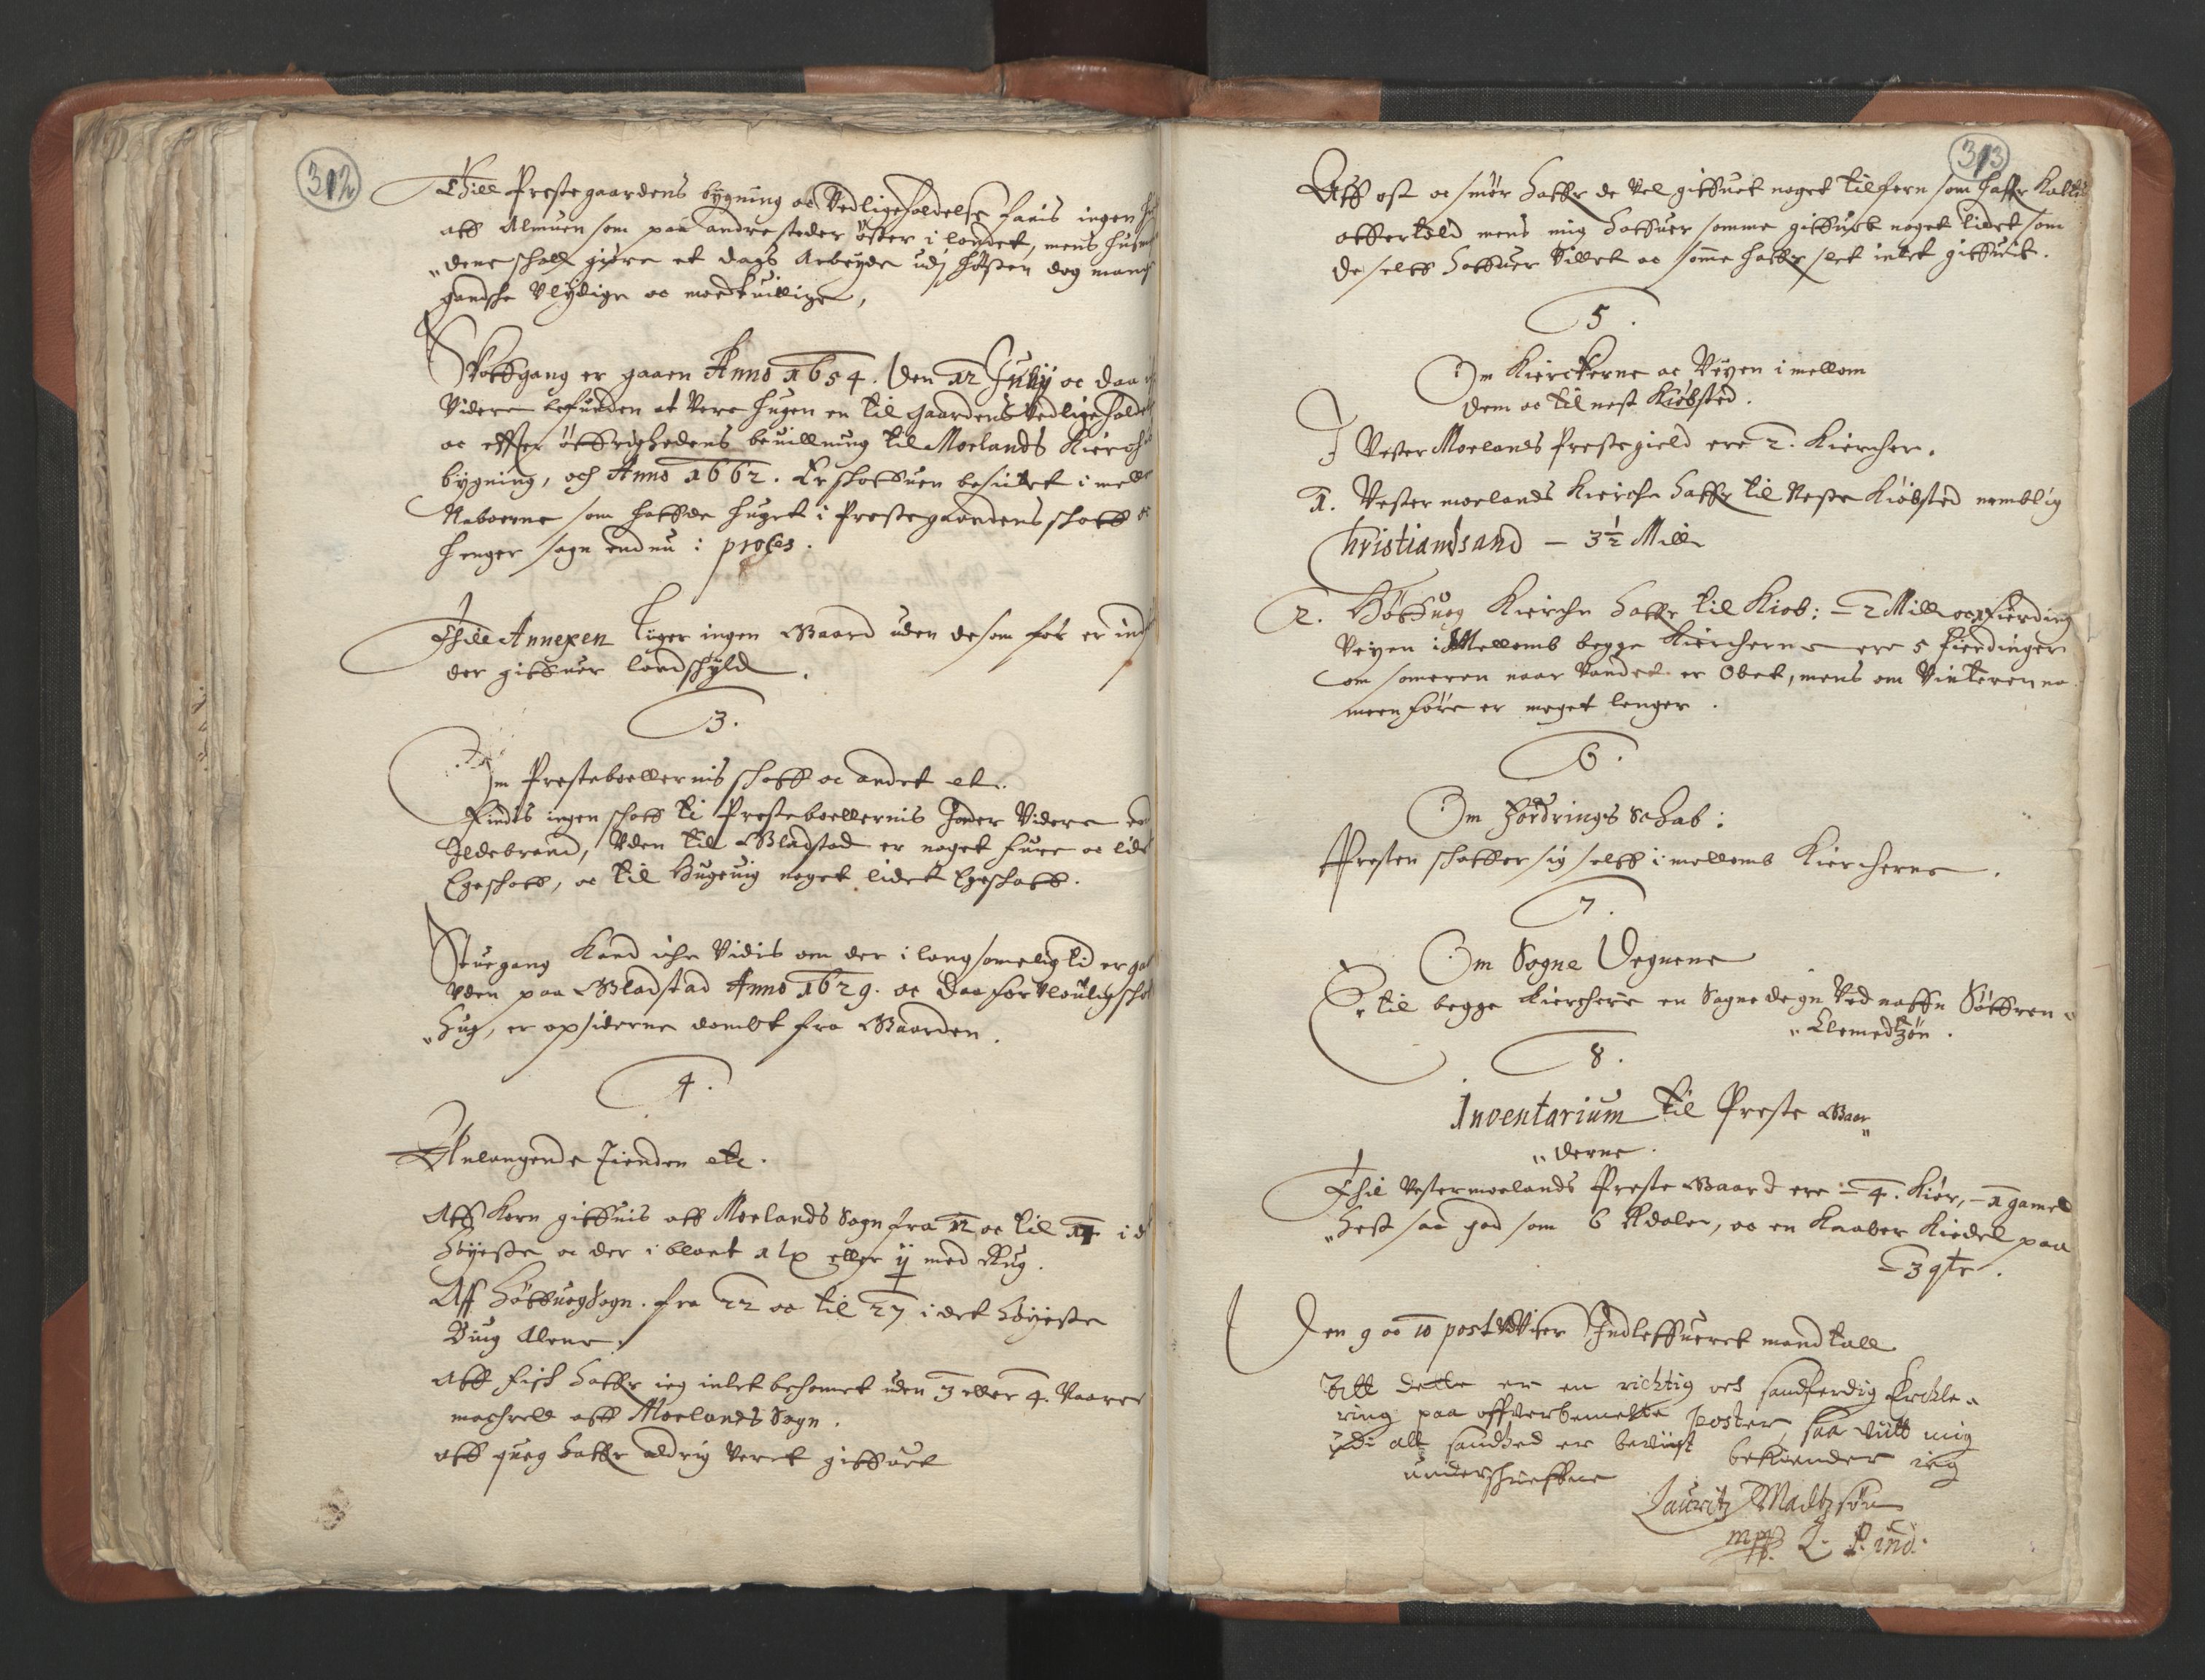 312
Thill Prestegaardens bÿgning oc Vedligeholdelse faais ingen
aff Almuen som paa andre steder øster i landet, mens
dene schall giøre et dags Arbeÿde udj høsten dog
gandsche Vlÿdige oc modtuillige,
Skoffgang er gaaen Anno 1654. Den 12 Julÿ oc daa
Videre befunden at Vere hugen en til gaardens Vedligehold
oc effter øffrighedens beuillning til Moelands Kierch
bÿgning, och Anno 1662. Er skoffuen besictet i melle
Naboerne som haffde huget i Prestegaardens schoff oc
henger sagn endnu i proces.
Thill Annexen liger ingen Gaard uden de som før er ind
der giffuer landschÿld.
3.
Om Presteboellernis schoff oc andet etc.
Findis ingen schoff til Presteboellernis Jorder Videre end
Ildebrand, Vden til Bladstad er noget furre oc lidt
Egeschoff, oc til Hugeuig noget lidet Egeschoff.
Stuegang Kand iche Vidis om der i langsomelig tid er
Vden paa Bladstad Anno 1629. oc daa for Vloulig schof
hug, er opsiderne dømbt fra Gaarden.
4.
Anlangende Tienden etc.
Aff Korn giffuis aff Moelands Sogn fra 12 oc til 14 i d
høÿeste oc der i blant 1 lp eller ij med Rug.
Aff Høffuogsogn. fra 22 oc til 27 i det høÿeste
Biug Alene.
Aff Fisch haffr ieg intet bekomet uden 3 eller 4. Vaarer
machrell aff Moelands Sogn.
aff queg haffr aldrig veret giffuet
313
Aff ost oc smør haffr de Vel giffuet noget tilforn som haffr
offertold mens mig haffuer somme giffuet noget lidet som
de selff haffuer Villet oc some haffr slet intet giffuet.
5.
Om Kierckerne oc Veÿen i mellom
dem oc til nest Kiøbsted.
I Vester Moelands Prestegield ere 2. Kiercher.
1. Vestermoelands Kierche haffr til Neste Kiøbsted nemblig
Christiandsand – 3½ Mill
2. Høffuog Kierche haffr til Kiob: – 2 Mill oc 1 fierding
Veÿen i Mellomb begge Kiercherne ere 5 fierdinger
om someren naar Vandet er Obet, mens om Vinteren naa
meenføre er meget lenger.
6.
Om Fordrings Schab:
Presten schaffer sig selff i mellomb Kiercherne.
7.
Om Sogne Degnene
Er til begge Kiercherne en Sognedegn Ved naffn Søffren
Clemedtzøn.
8.
Inventarium til Preste Gaar
derne.
Thil Vestermoelands Preste Gaard ere – 4. Kiør, – 1 gamel
Hest saa god som 6 Rdaler, oc en Kaaber Kiedel paa
– 3 gtr.
Den 9 oc 10 post Viser Indleffueret mandtall
Att dette er en richtig och sandferdig Erchle
ring paa offuerbemelte Poster, saa vitt mig
udi all sandhed er beuiist bekiender ieg
underschreffne
Lauritz Madtzsøn
mpp. L. P. ind: